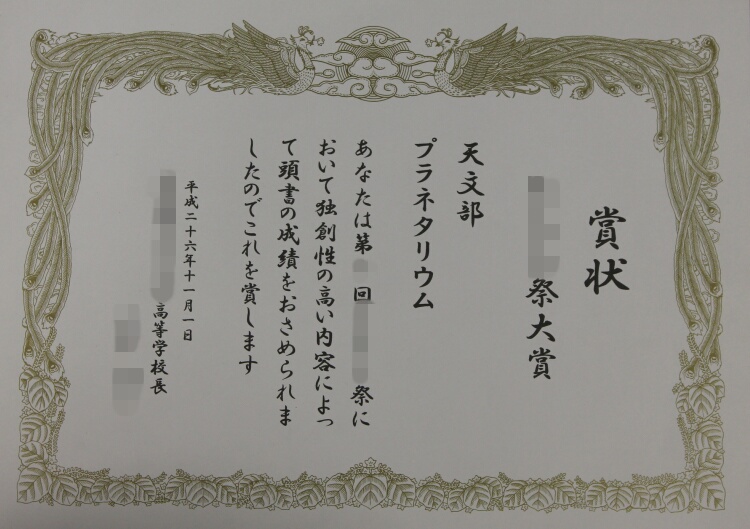 賞状
祭大賞
天文部
プラネタリウム
あなたは第 回 祭に
おいて独創性の高い内容によっ
て頭書の成績をおさめられま
したのでこれを賞します
平成二十六年十一月一日
高等学校長